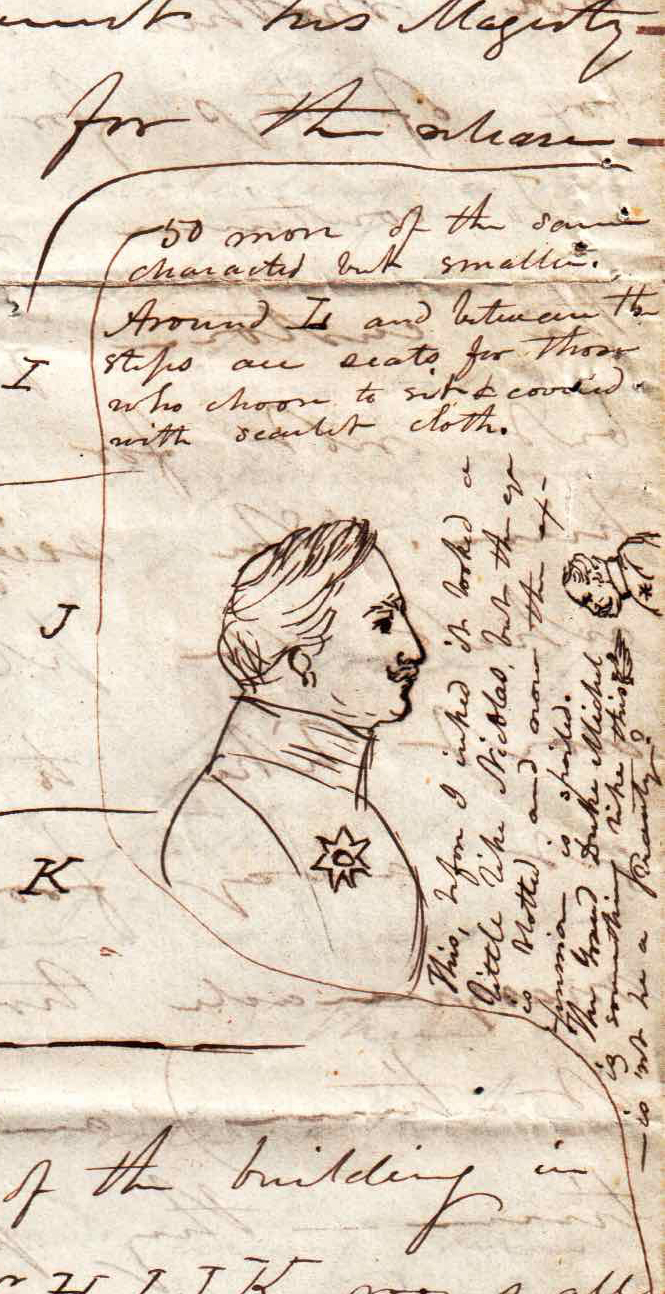 his Majesty
for the
50 more of the same
character but smaller.
Around Is and between the
steps are seats for those
who choose to sit & covered
with scarlet cloth.
I
J
K
This, before I inked it looked a
little like Nicklas, but the eye
is blotted and now the ex-
pression is spoiled.
The Grand Duke Michel
is something like this
— is not he a beauty?
of the building in
H I J K